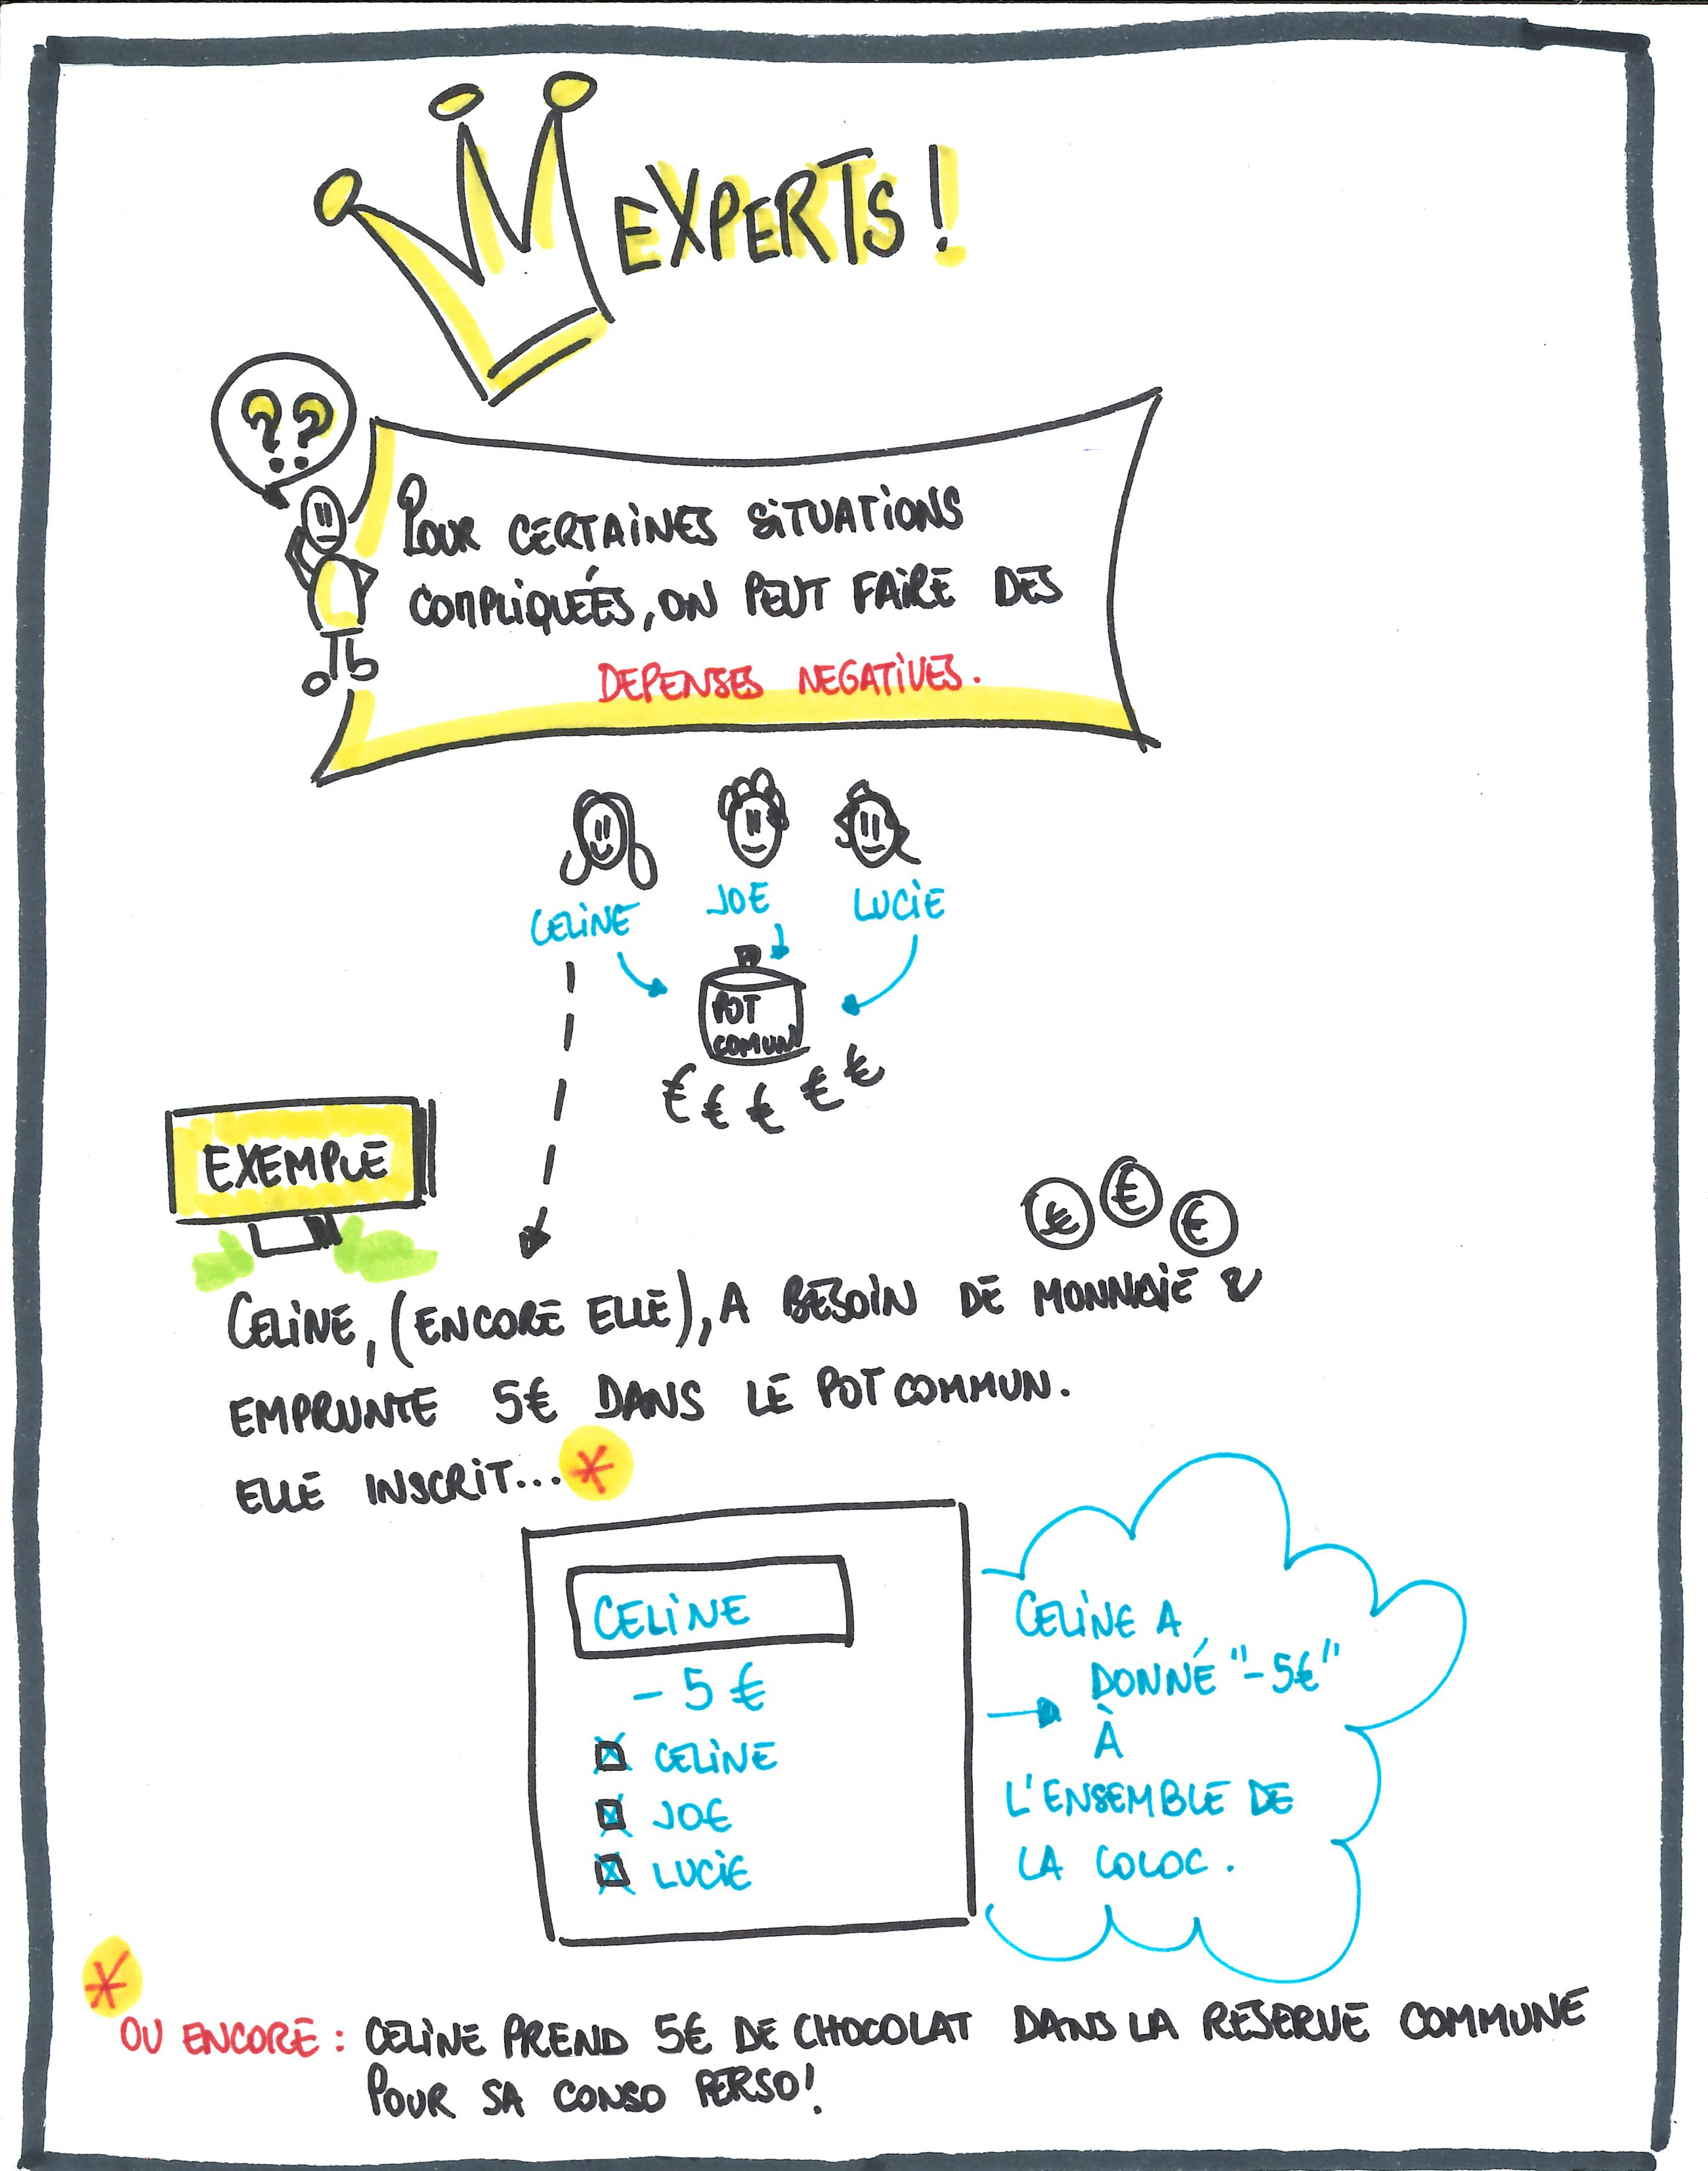 EXPERTS !
??
POUR CERTAINES SITUATIONS
COMPLIQUÉES, ON PEUT FAIRE DES
DEPENSES NEGATIVES.
CELINE
JOE
LUCIE
POT
COMUN
€ € € € €
EXEMPLE
€ € €
CELINE, (ENCORE ELLE), A BESOIN DE MONNAIE &
EMPRUNTE 5€ DANS LE POT COMMUN.
ELLE INSCRIT... *
CELINE
- 5 €
CELINE
JOE
LUCIE
CELINE A
DONNÉ "-5€"
À
L'ENSEMBLE DE
LA COLOC.
*
OU ENCORE : CELINE PREND 5€ DE CHOCOLAT DANS LA RESERVE COMMUNE
POUR SA CONSO PERSO!